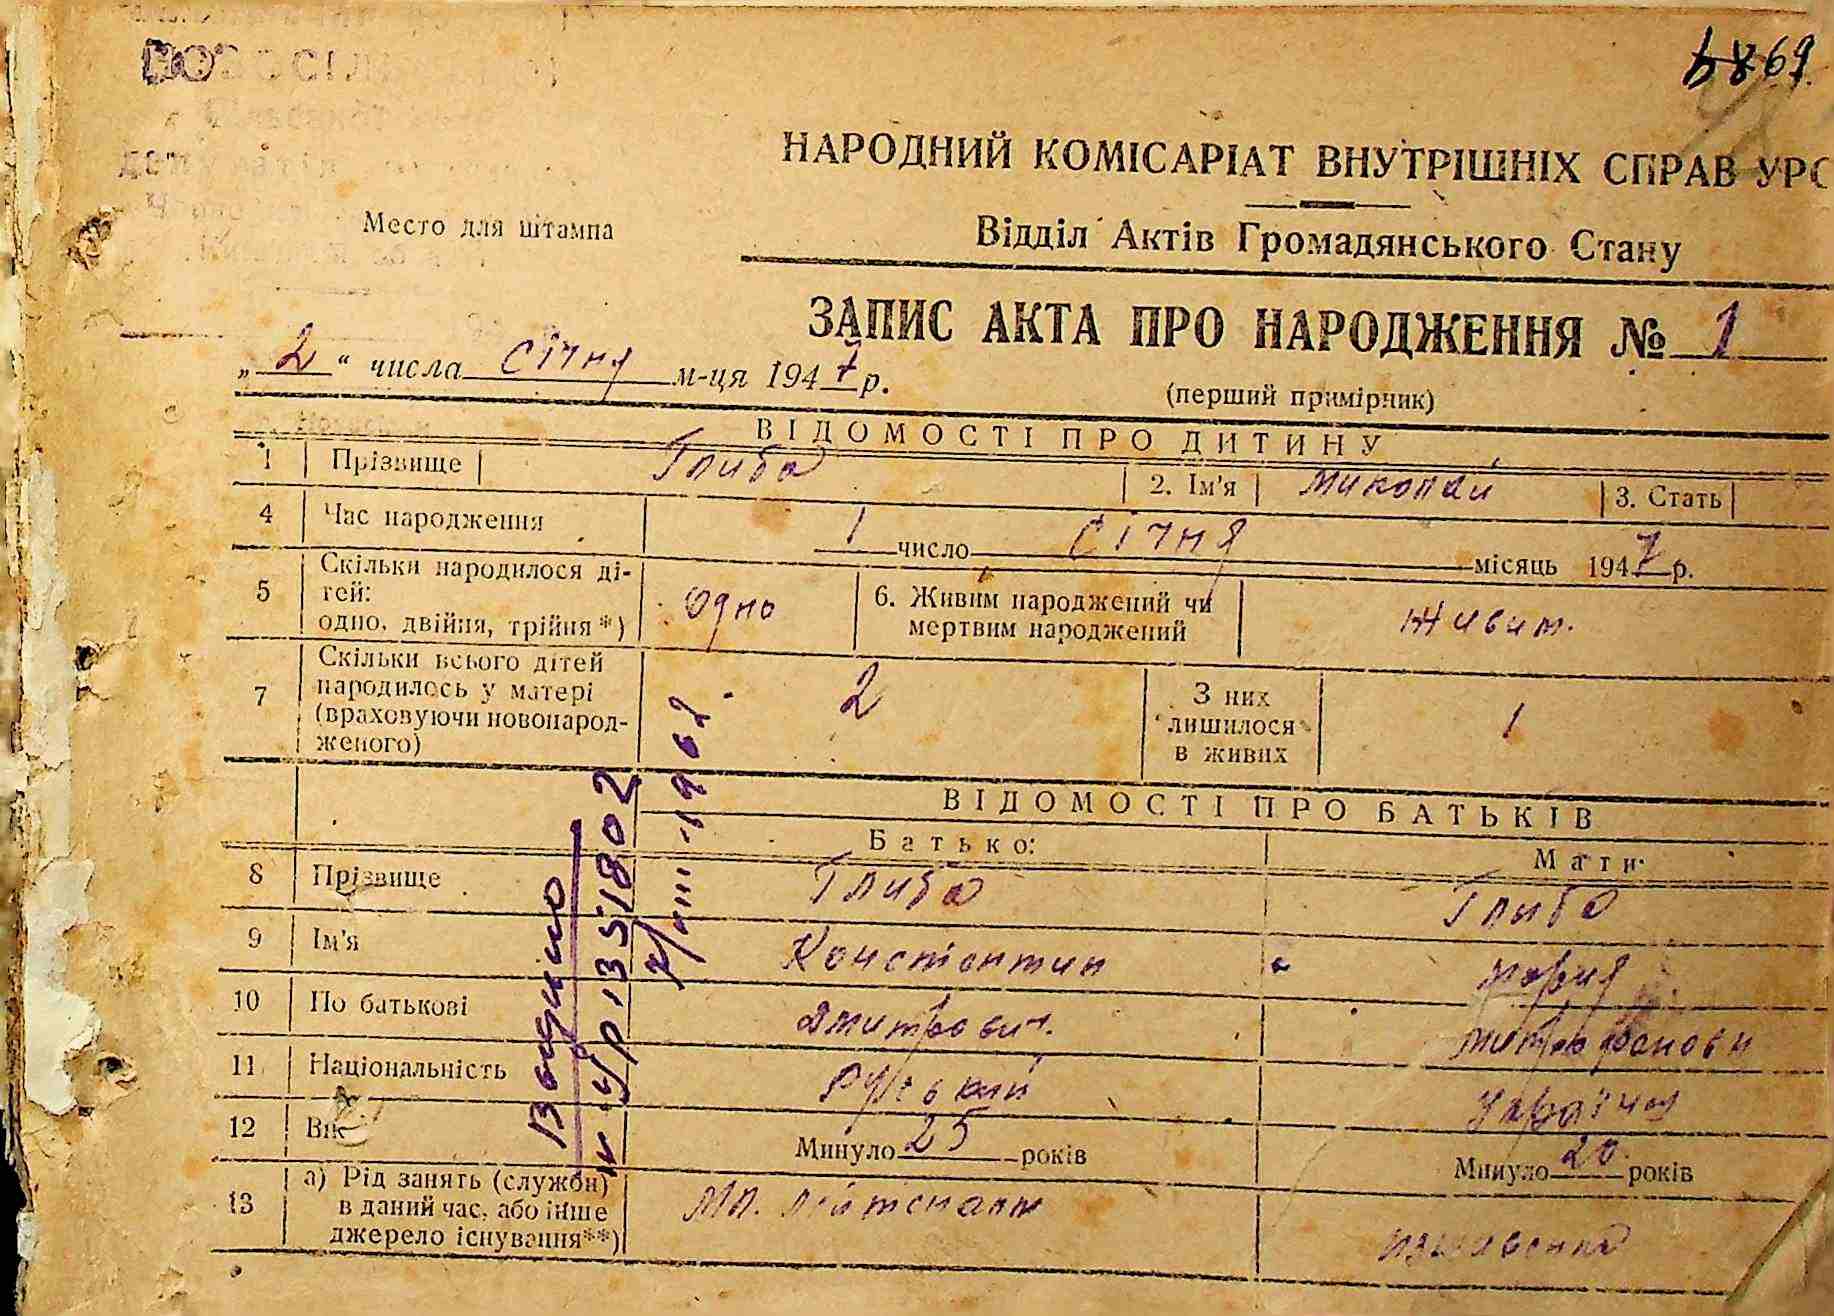 69.
НАРОДНИЙ КОМІСАРІАТ ВНУТРІШНІХ СПРАВ УРС
Место для штампа
Відділ Актів Громадянського Стану
ЗАПИС АКТА ПРО НАРОДЖЕННЯ № 1
„ 2 “ числа січня м-ця 1947 р.
(перший примірник)
ВІДОМОСТІ ПРО ДИТИНУ
1 Прізвище Глиба 2. Ім'я Миколай 3. Стать
4 Час народження 1 число Січня місяць 1947 р.
5 Скільки народилося ді-
тей:
одно, двійня, трійня*) Одно 6. Живим народжений чи
мертвим народжений Живим.
7 Скільки всього дітей
народилось у матері
(враховуючи новонарод-
женого) 2 З них
лишилося
в живих 1
ВІДОМОСТІ ПРО БАТЬКІВ
Батько: Мати:
8 Прізвище Глиба Глиба
9 Ім'я Констонтин Мария
10 По батькові Дмитрович. Митрофанови
11 Національність Руський Україн
12 Вік Минуло 25 років Минуло 20 років
13 а) Рід занять (служби)
в даний час, або інше
джерело існування**) Мл. лейтенант
Видано
УР 1351802
1962